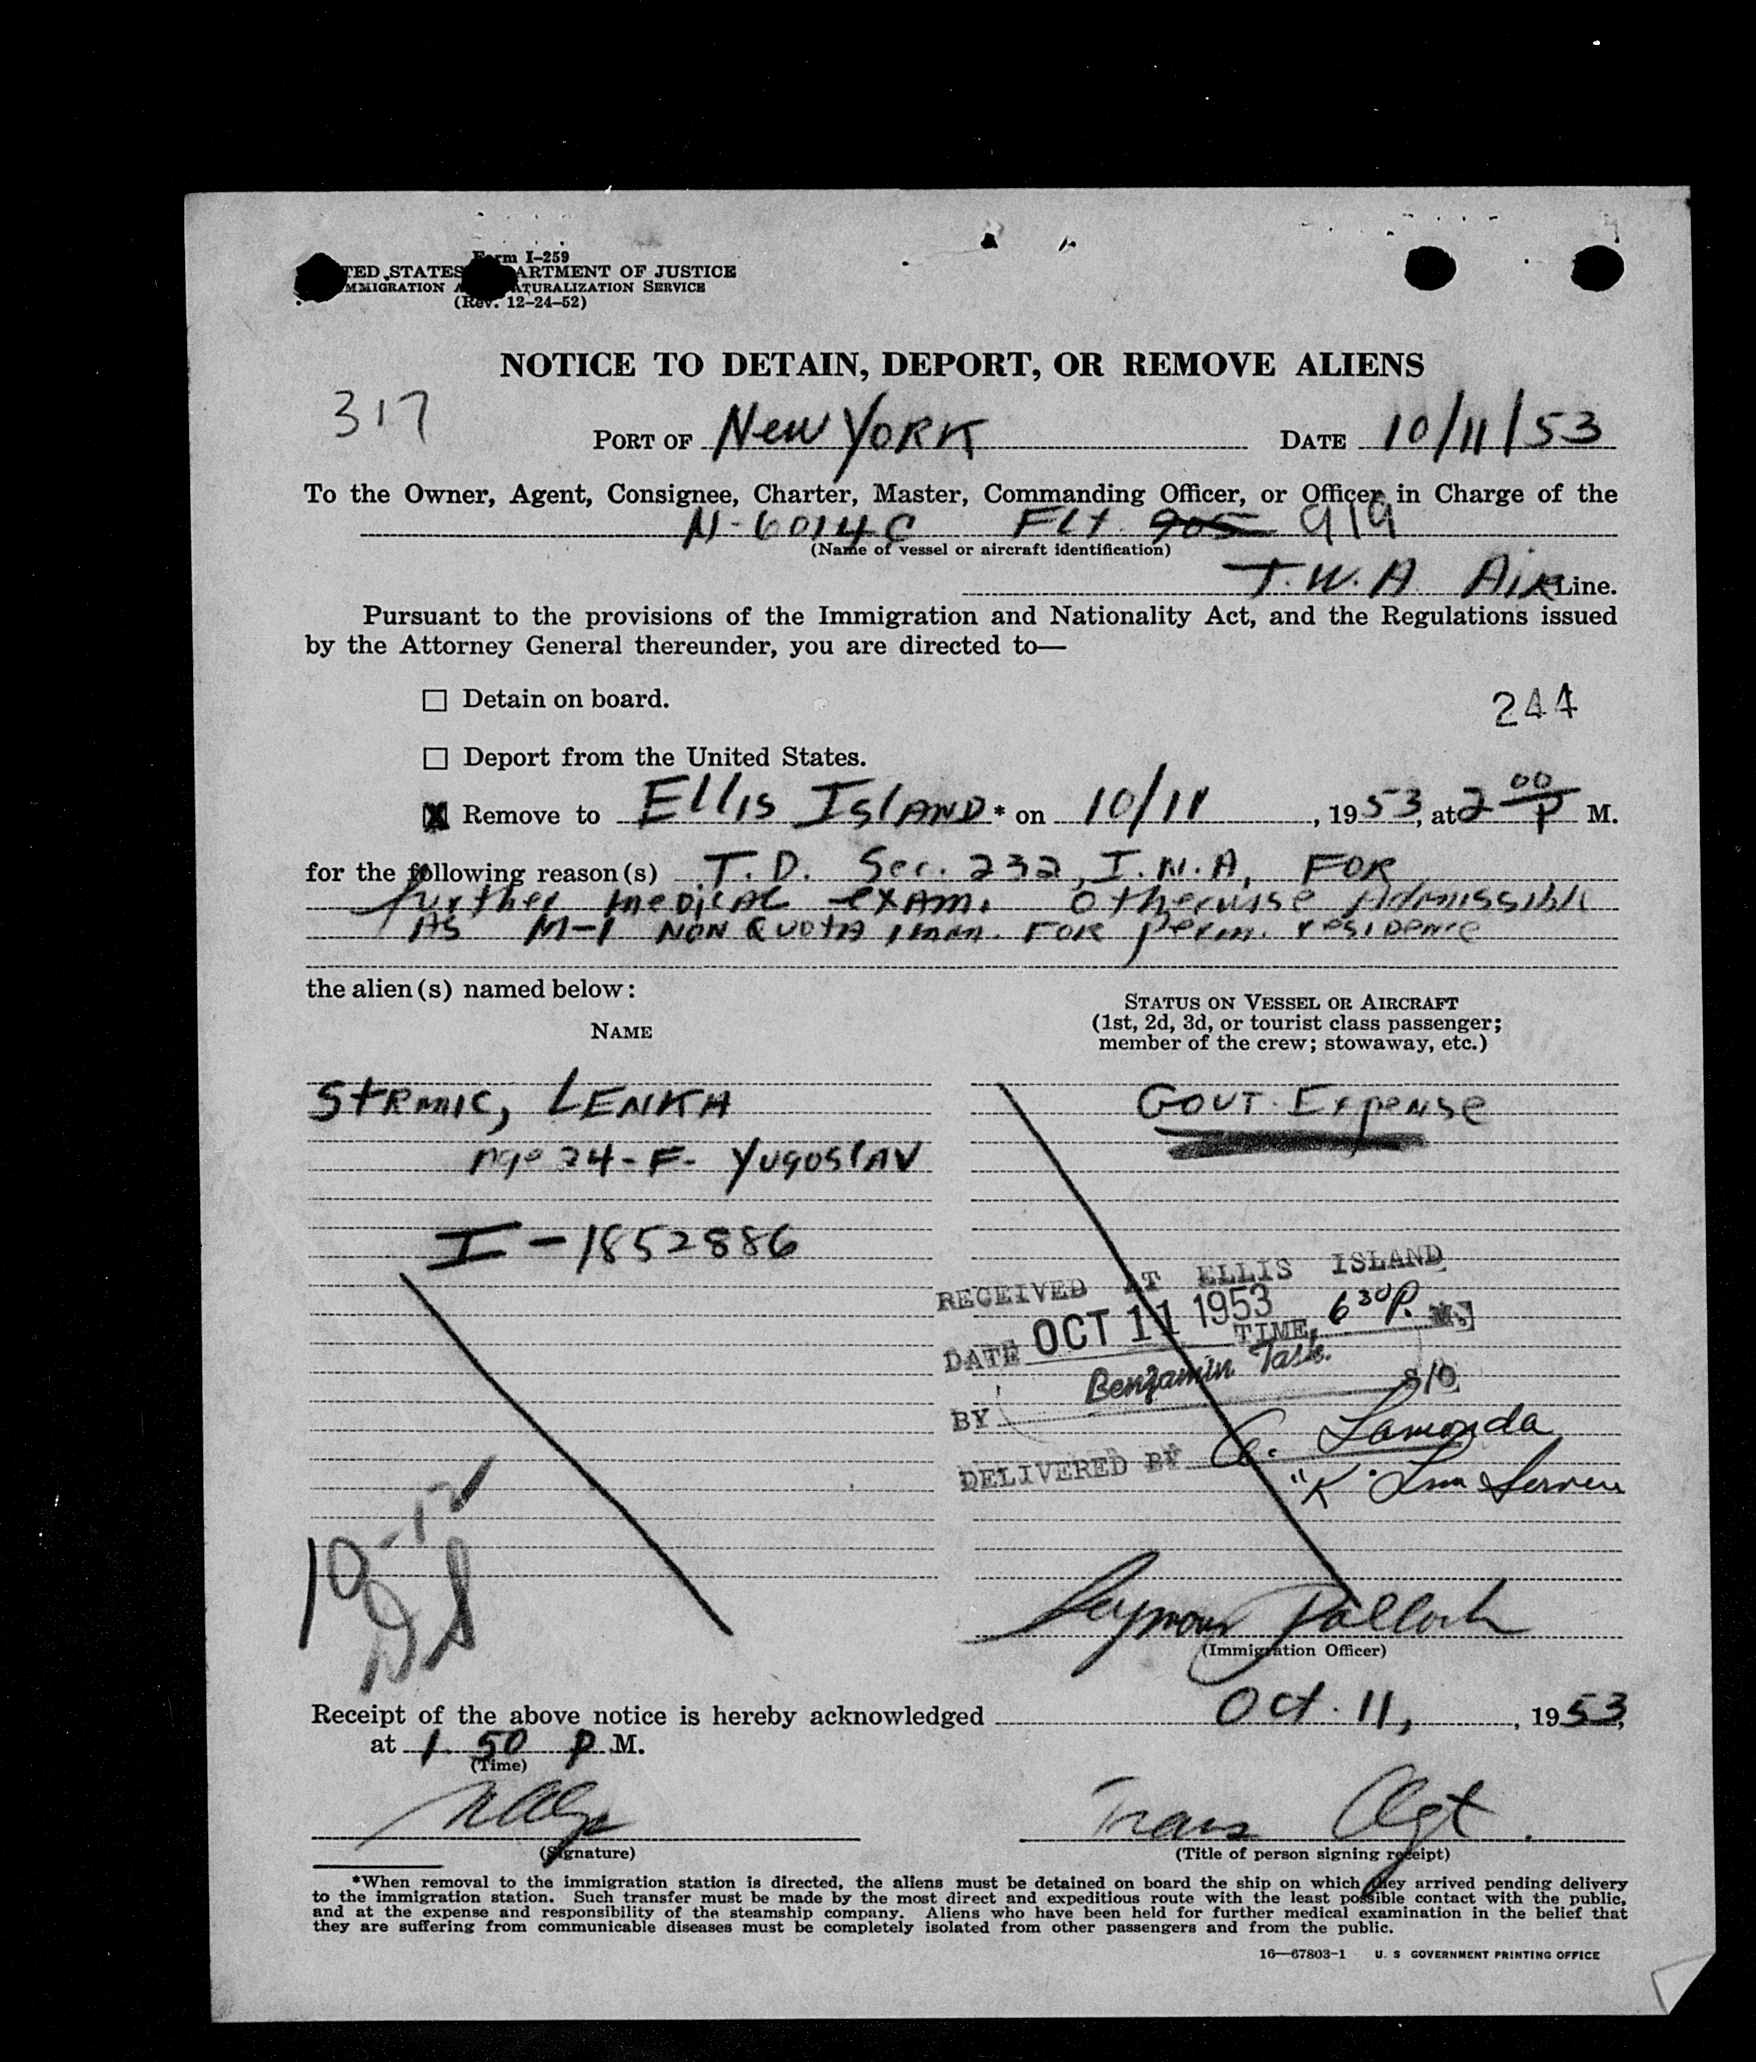 Form I-259
TED STATES ARTMENT OF JUSTICE
MMIGRATION A ATURALIZATION SERVICE
(Rev. 12-24-52)
NOTICE TO DETAIN, DEPORT, OR REMOVE ALIENS
317
PORT OF New YORK DATE 10/11/53
To the Owner, Agent, Consignee, Charter, Master, Commanding Officer, or Officer in Charge of the
N-6014C FLt. 905 919
(Name of vessel or aircraft identification)
T.W.A. AIR Line.
Pursuant to the provisions of the Immigration and Nationality Act, and the Regulations issued
by the Attorney General thereunder, you are directed to—
☐ Detain on board.
244
☐ Deport from the United States.
☒ Remove to Ellis IslAND * on 10/11, 1953, at 2 00 P M.
for the following reason(s) T.D. Sec. 232, I.N.A, FOR
further medical exam. Otherwise Admissible
AS M-1 NON QUOTA imm. FOR perm. resIDence
the alien(s) named below:
NAME
STATUS ON VESSEL OR AIRCRAFT
(1st, 2d, 3d, or tourist class passenger;
member of the crew; stowaway, etc.)
StRmic, LENKA
GOVT. Expense
age 24-F- YugoslAV
I-1852886
RECEIVED AT ELLIS ISLAND
DATE OCT 11 1953 TIME 6 30 P. M.
Benzamin Task.
BY
DELIVERED BY C. Lamonda
"K" Lim Service
10-12
DS
Seymour Pollock
(Immigration Officer)
Receipt of the above notice is hereby acknowledged Oct. 11, , 1953,
at 1 50 P M.
(Time)
Trans Agt.
(Signature)
(Title of person signing receipt)
*When removal to the immigration station is directed, the aliens must be detained on board the ship on which they arrived pending delivery
to the immigration station. Such transfer must be made by the most direct and expeditious route with the least possible contact with the public,
and at the expense and responsibility of the steamship company. Aliens who have been held for further medical examination in the belief that
they are suffering from communicable diseases must be completely isolated from other passengers and from the public.
16—67803-1 U. S GOVERNMENT PRINTING OFFICE